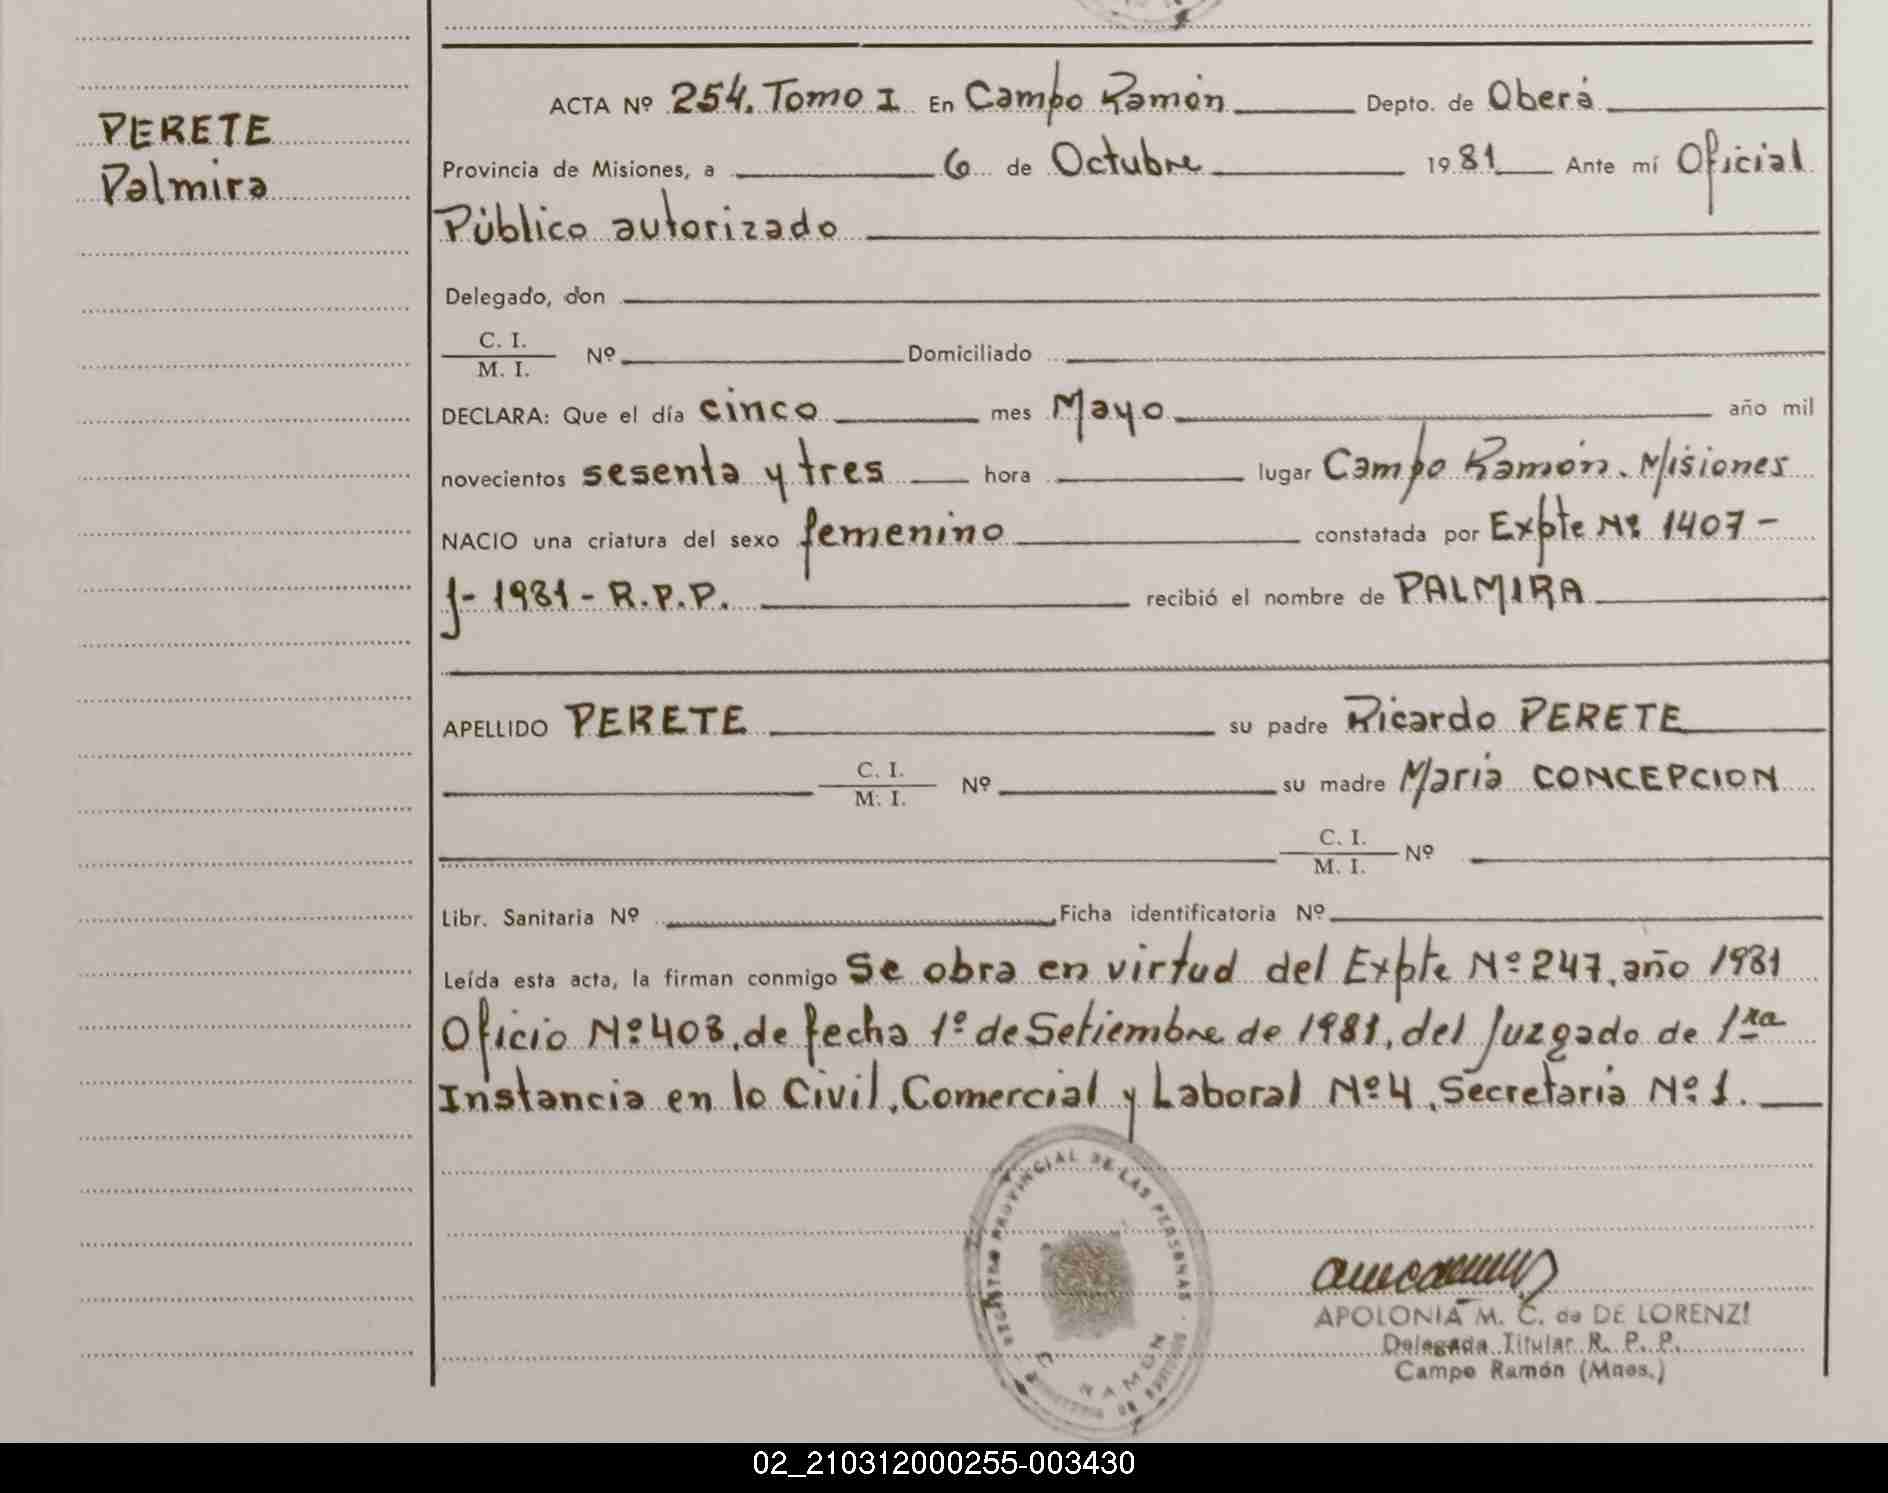 PERETE
Palmira
ACTA Nº 254. Tomo I En Campo Ramón Depto. de Oberá
Provincia de Misiones, a 6 de Octubre 1981 Ante mí Oficial
Público autorizado
Delegado, don
C. I.
M. I.
Nº Domiciliado
DECLARA: Que el día cinco mes Mayo año mil
novecientos sesenta y tres hora lugar Campo Ramón. Misiones
NACIO una criatura del sexo femenino constatada por Expte Nº 1407 -
J- 1981 - R.P.P. recibió el nombre de PALMIRA
APELLIDO PERETE su padre Ricardo PERETE
C. I.
M. I.
Nº su madre Maria CONCEPCION
C. I.
M. I.
Nº
Libr. Sanitaria Nº Ficha identificatoria Nº
Leída esta acta, la firman conmigo Se obra en virtud del Expte Nº 247, año 1981
Oficio Nº 403, de fecha 1º de Setiembre de 1981, del Juzgado de 1ra
Instancia en lo Civil, Comercial y Laboral Nº 4, Secretaria Nº 1.
REGISTRO PROVINCIAL DE LAS PERSONAS
RAMON
APOLONIA M. C. de DE LORENZI
Delegada Titular R. P. P.
Campo Ramón (Mnes.)
02_210312000255-003430